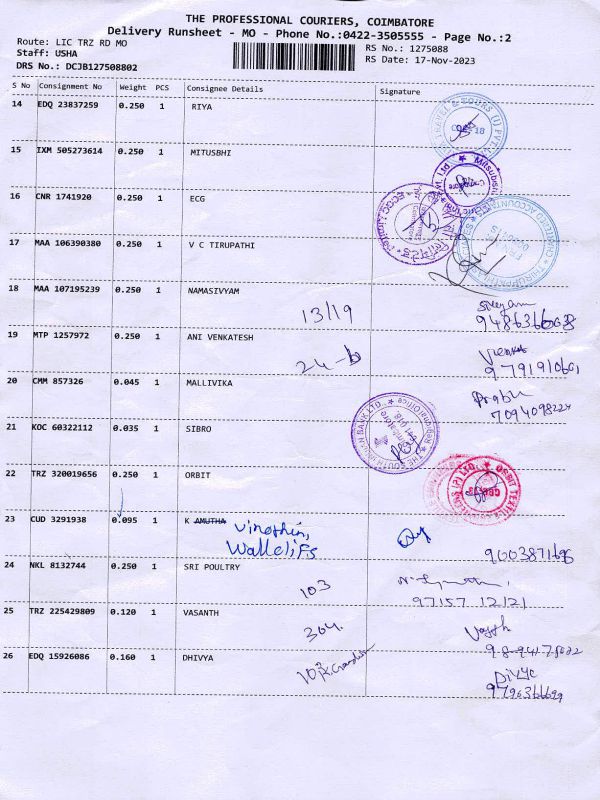 THE PROFESSIONAL COURIERS, COIMBATORE
Delivery Runsheet - MO - Phone No.:0422-3505555 - Page No.:2
Route: LIC TRZ RD MO
Staff: USHA
DRS No.: DCJB127508802
RS No.: 1275088
RS Date: 17-Nov-2023
S No Consignment No Weight PCS Consignee Details Signature
14 EDQ 23837259 0.250 1 RIYA
15 IXM 505273614 0.250 1 MITUSBHI
16 CNR 1741920 0.250 1 ECG
17 MAA 106390380 0.250 1 V C TIRUPATHI
18 MAA 107195239 0.250 1 NAMASIVYAM
13/19
19 MTP 1257972 0.250 1 ANI VENKATESH
24-b
20 CMM 857326 0.045 1 MALLIVIKA
Prabu
7094098224
21 KOC 60322112 0.035 1 SIBRO
THE SOUTH INDIAN BANK LTD.
22 TRZ 320019656 0.250 1 ORBIT
23 CUD 3291938 0.095 1 K AMUTHA
9003871696
24 NKL 8132744 0.250 1 SRI POULTRY
103
97157 12121
25 TRZ 225429809 0.120 1 VASANTH
304.
26 EDQ 15926086 0.160 1 DHIVYA